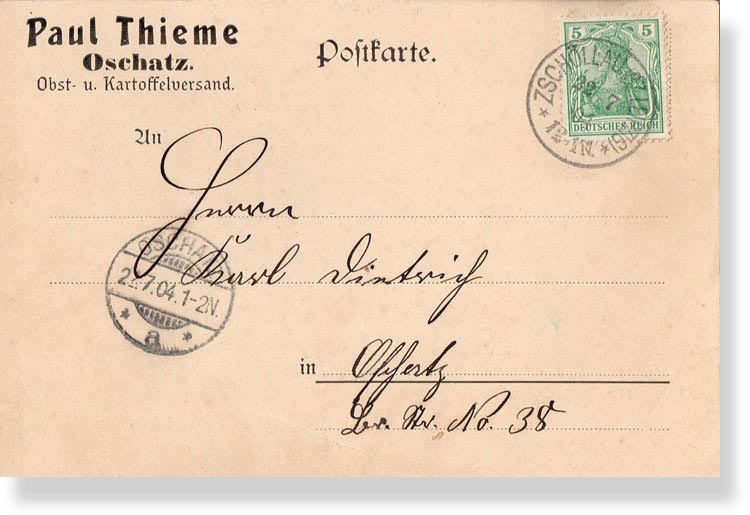 Paul Thieme
Oschatz.
Obst- u. Kartoffelversand.
Poſtkarte.
5 5
DEUTSCHES REICH
ZSCHÖLLAU
7
* 12-1N. *
An
Herrn
Karl Dietrich
OSCHATZ
7.04.1-2N.
* a *
in Oschatz
Br. Str. No. 38